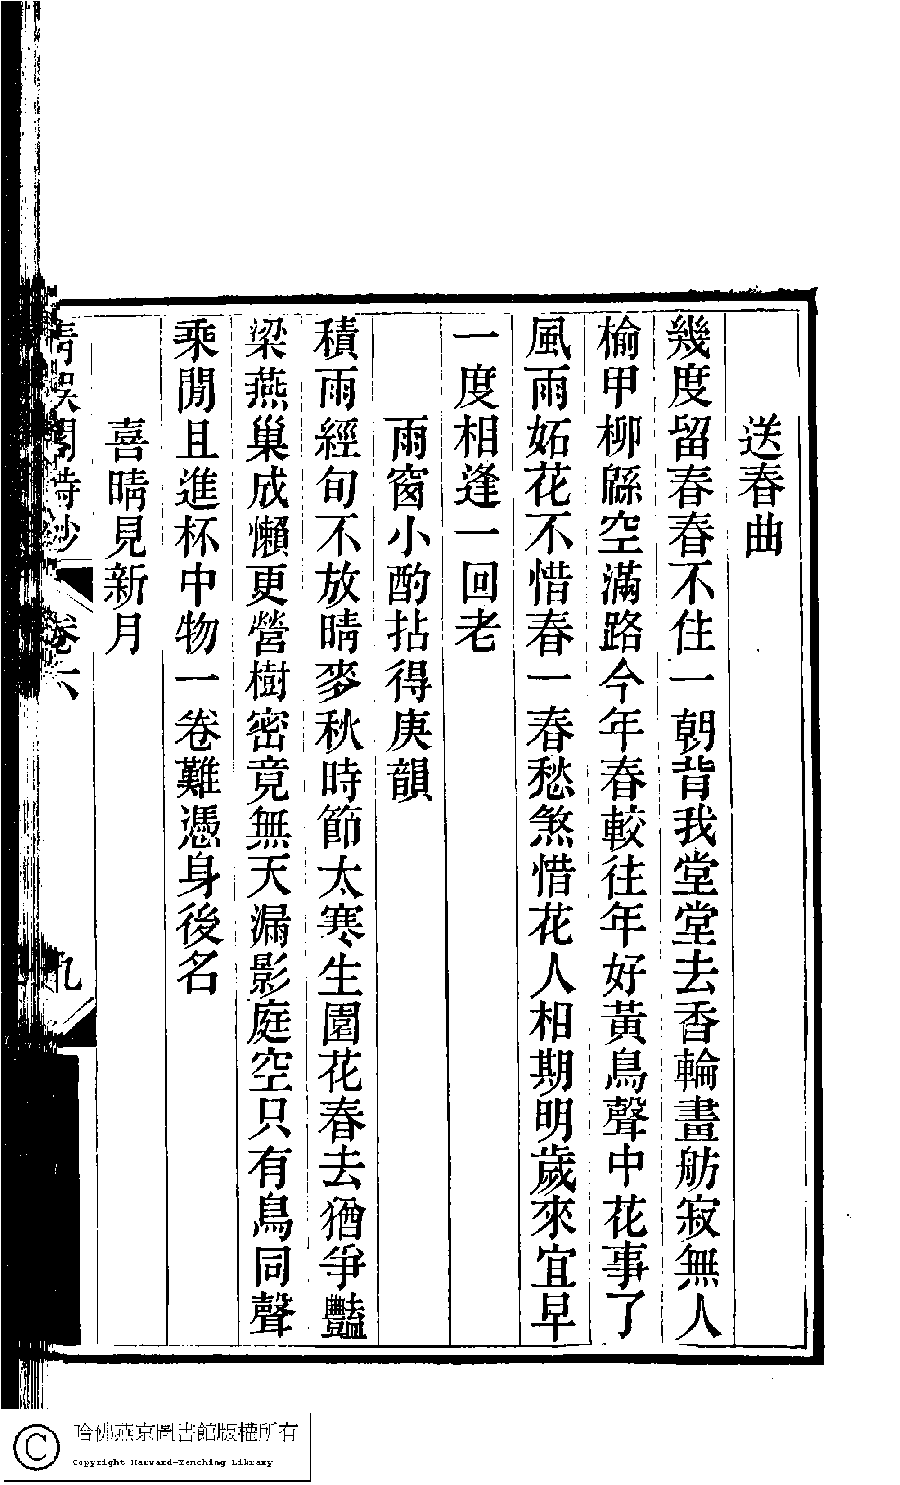 送春曲
幾度留春春不住一朝背我堂堂去香輪畫舫寂無人
榆甲柳緜空滿路今年春較往年好黃鳥聲中花事了
風雨妬花不惜春一春愁煞惜花人相期明歲來宜早
一度相逢一回老
雨窗小酌拈得庚韻
積雨經旬不放晴麥秋時節太寒生園花春去猶爭豔
梁燕巢成懶更營樹密竟無天漏影庭空只有鳥同聲
乘閒且進杯中物一卷難憑身後名
喜晴見新月
閣詩鈔 卷六 九
哈佛燕京圖書館版權所有
Copyright Harvard-Yenching Library